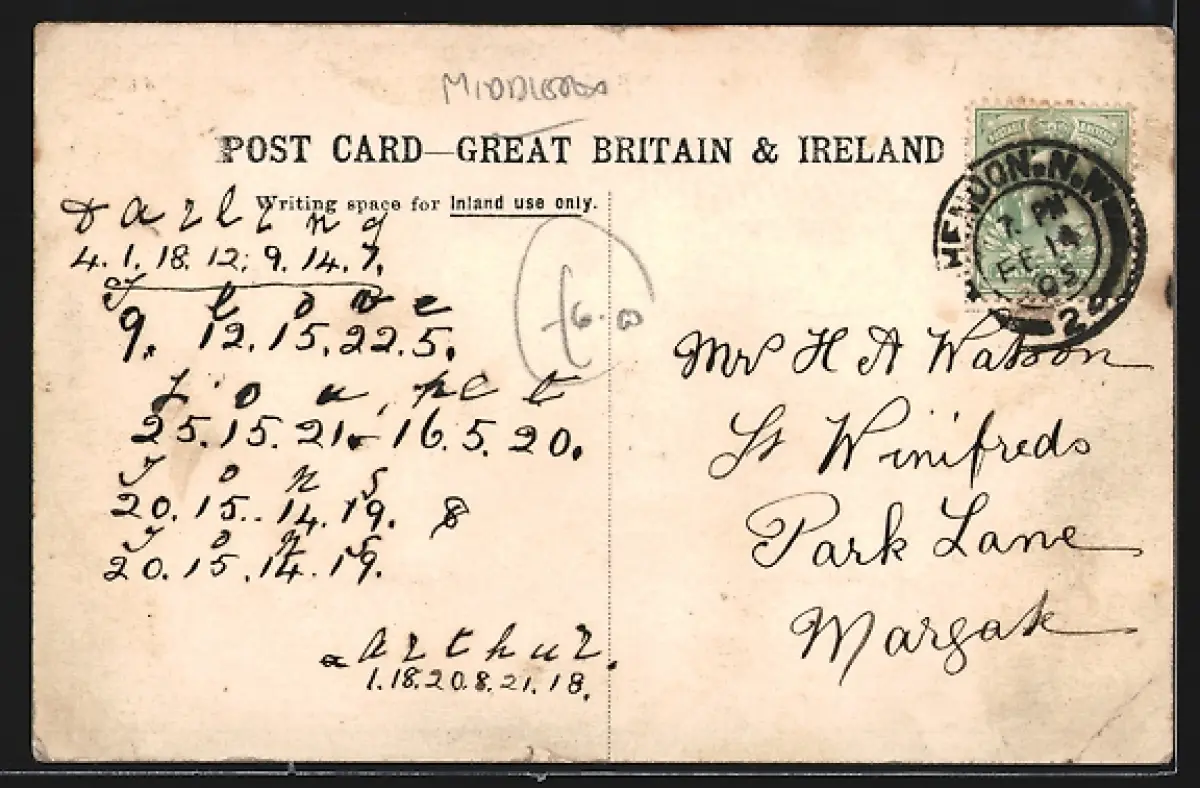 POST CARD—GREAT BRITAIN & IRELAND
Writing space for Inland use only.
HENDON.N.W.
7. PM
FE 14
05
22
Darling
4. 1. 18. 12. 9. 14. 7.
I love
9. 12. 15. 22. 5.
You, pet
25. 15. 21. - 16. 5. 20.
Tons
20. 15. 14. 19. &
Tons
20. 15. 14. 19.
Arthur.
1. 18. 20. 8. 21. 18.
£6.00
H A Watson
St Winifreds
Park Lane
Margate